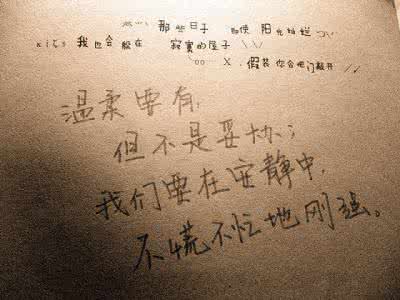 那些日子 即使 阳光灿烂
кiζs 我也会躲在 寂寞的屋子 \\
oo X 假装你会把门敲开 //
温柔要有,
但不是妥协;
我们要在安静中,
不慌不忙地刚强。